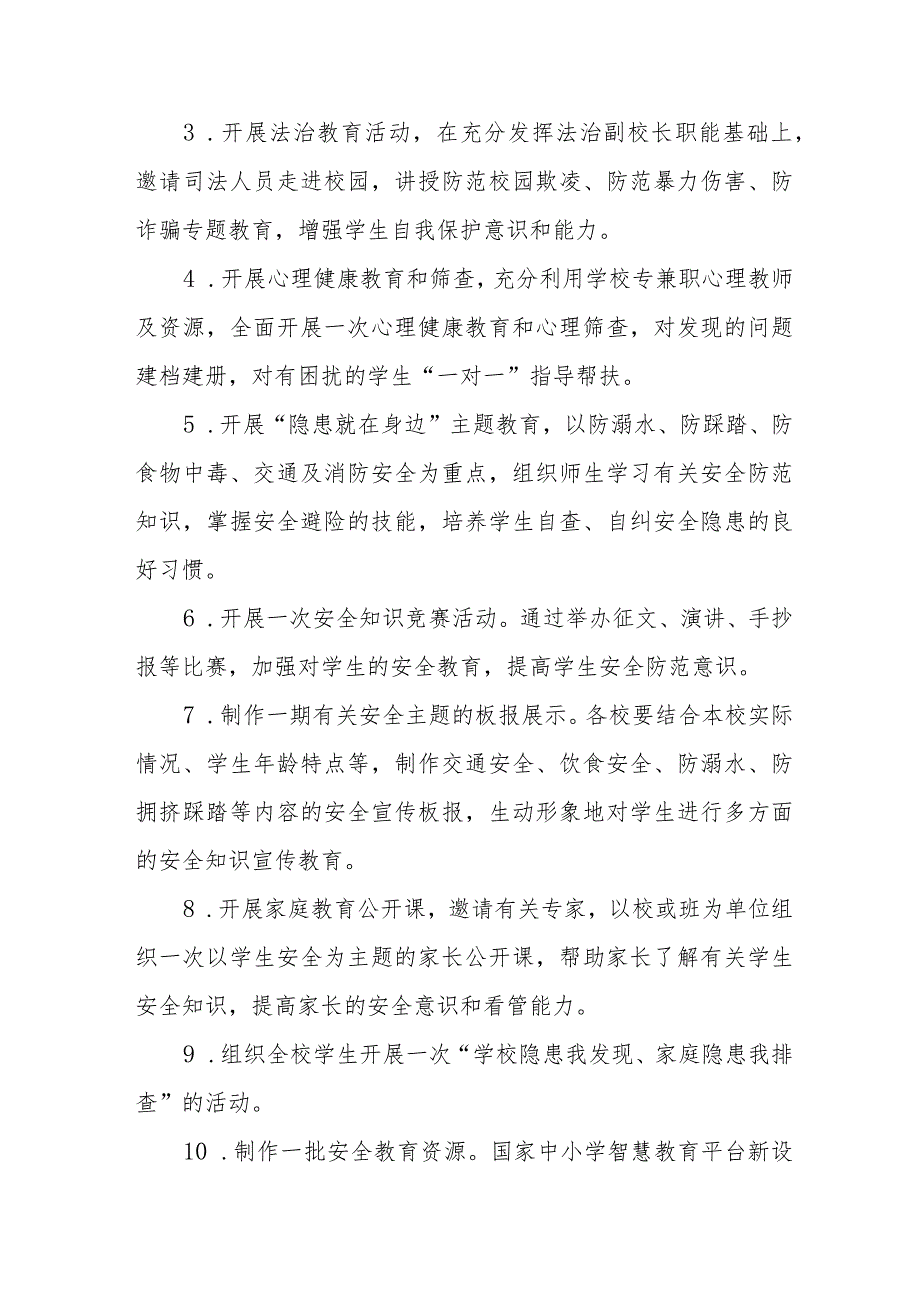 3 .开展法治教育活动，在充分发挥法治副校长职能基础上，
邀请司法人员走进校园，讲授防范校园欺凌、防范暴力伤害、防
诈骗专题教育，增强学生自我保护意识和能力。
4 .开展心理健康教育和筛查，充分利用学校专兼职心理教师
及资源，全面开展一次心理健康教育和心理筛查，对发现的问题
建档建册，对有困扰的学生“一对一”指导帮扶。
5 .开展“隐患就在身边”主题教育，以防溺水、防踩踏、防
食物中毒、交通及消防安全为重点，组织师生学习有关安全防范
知识，掌握安全避险的技能，培养学生自查、自纠安全隐患的良
好习惯。
6 .开展一次安全知识竞赛活动。通过举办征文、演讲、手抄
报等比赛，加强对学生的安全教育，提高学生安全防范意识。
7 .制作一期有关安全主题的板报展示。各校要结合本校实际
情况、学生年龄特点等，制作交通安全、饮食安全、防溺水、防
拥挤踩踏等内容的安全宣传板报，生动形象地对学生进行多方面
的安全知识宣传教育。
8 .开展家庭教育公开课，邀请有关专家，以校或班为单位组
织一次以学生安全为主题的家长公开课，帮助家长了解有关学生
安全知识，提高家长的安全意识和看管能力。
9 .组织全校学生开展一次“学校隐患我发现、家庭隐患我排
查”的活动。
10 .制作一批安全教育资源。国家中小学智慧教育平台新设